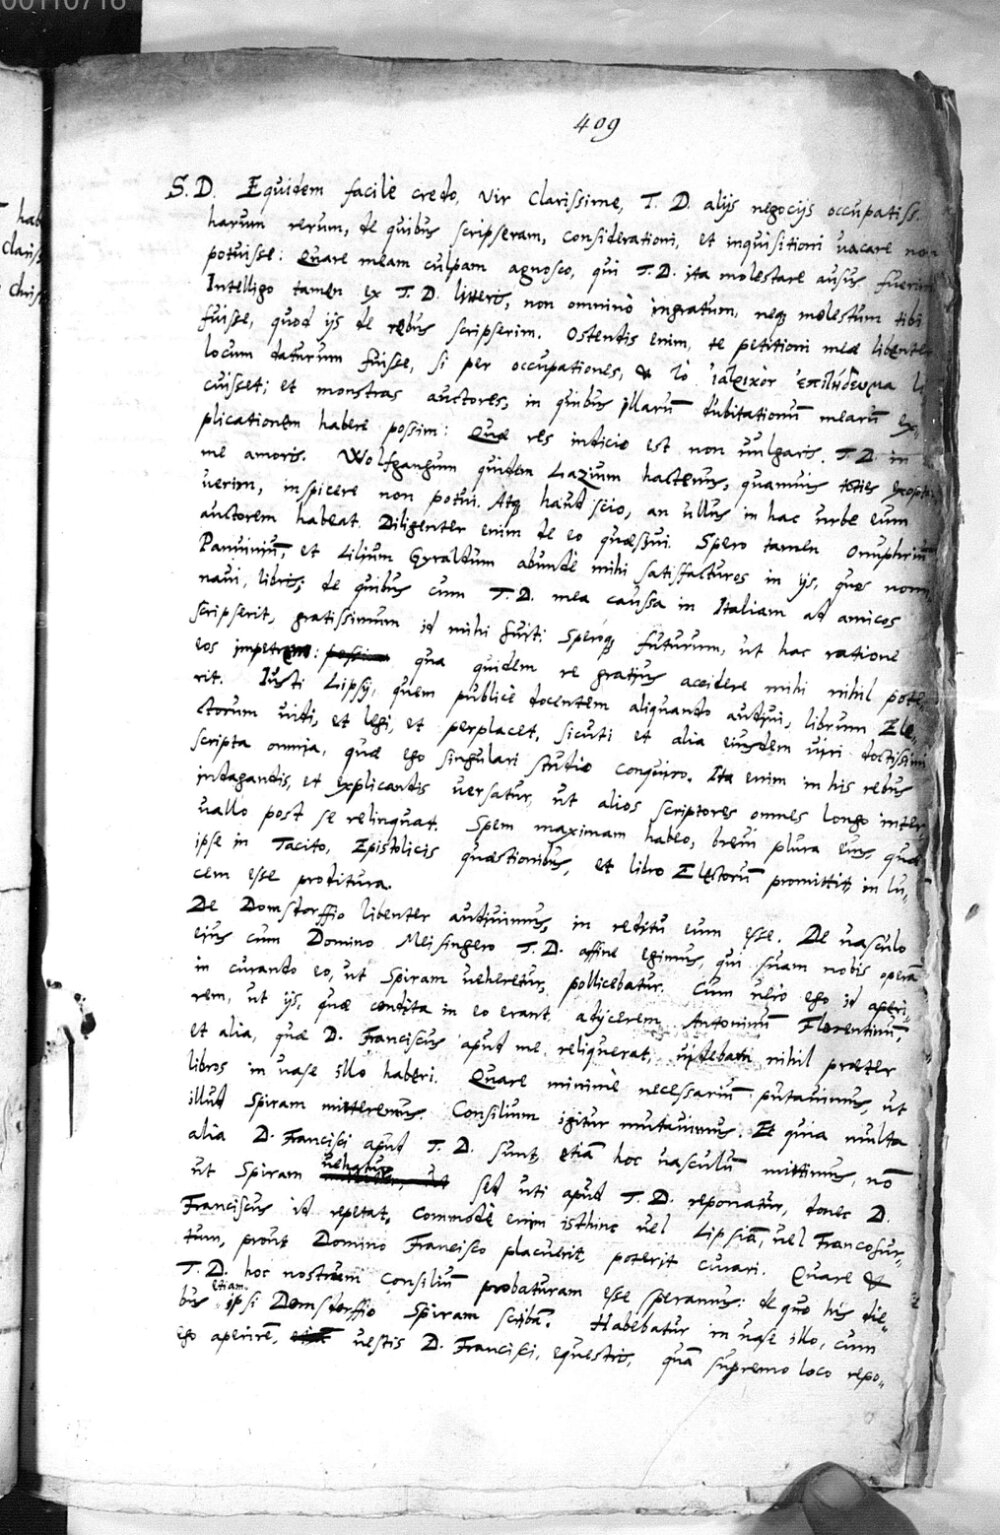 00110716
409
S. D. Equidem facilè credo, Vir Clarissime, T. D. alijs negocijs occupatiss.
harum rerum, de quibus scripseram, considerationi, et inquisitioni uacare non
potuisse: Quare meam culpam agnosco, qui T. D. ita molestare ausus fuerim
Intelligo tamen ex T. D. litteris, non omninò ingratum, neq molestum tibi
fuisse, quod ijs de rebus scripserim. Ostendis enim, te petitioni meæ libenter
locum daturum fuisse, si per occupationes, & τὸ ἰατρικὸν ἐπιτήδευμα li
cuisset; et monstras auctores, in quibus illarũ dubitationũ mearũ ex„
plicationem habere possim: Quæ res indicio est non uulgaris T. D. in
me amoris. Wolfgangum quidem Lazium hactenus, quamuis toties exopta
uerim, inspicere non potui. Atq haud scio, an ullus in hac urbe eum
auctorem habeat. Diligenter enim de eo quæsiui. Spero tamen Onuphriũ
Panuiniũ, et Lilium Gyraldum abundè mihi satisfacturos in ijs, quos nomi
naui, libris; de quibus cum T. D. mea caussa in Italiam ad amicos
scripserit, gratissimum id mihi fuit: Speroq futurum, ut hac ratione
eos impetrem: qua quidem re gratius accidere mihi nihil pote
rit. Iusti Lipsij, quem publicè docentem aliquando audiui, librum Ele„
ctorum uidi, et legi, et perplacet, sicuti et alia eiusdem uiri doctissimi
scripta omnia, quæ ego singulari studio conquiro. Ita enim in his rebus
indagandis, et explicandis uersatur, ut alios scriptores omnes longo inter
uallo post se relinquat. Spem maximam habeo, breui plura eius, quæ
ipse in Tacito, Epistolicis quæstionibus, et libro Electorũ promittit in lu„
cem esse proditura.
De Domstorffio libenter audiuimus, in reditu eum esse. De uasculo
eius cum Domino Meisingero T. D. affine egimus, qui suam nobis operã
in curando eo, ut Spiram ueheretur, pollicebatur. Cum uero ego id aperi„
rem, ut ijs, quæ condita in eo erant, adijcerem Antoninũ Florentinũ,
et alia, quæ D. Franciscus apud me reliquerat, uidebam nihil præter
libros in uase illo haberi. Quare minimè necessariũ putauimus, ut
illud Spiram mitteremus. Consilium igitur mutauimus. Et quia multa
alia D. Francisci apud T. D. sunt, etiã hoc uasculũ mittimus, nõ
ut Spiram uehatur, sed uti apud T. D. reponatur, donec D.
Franciscus id repetat. Commodè enim isthinc uel Lipsiã, uel Francofur„
tum, prout Domino Francisco placuerit, poterit curari. Quare &
T. D. hoc nostrum consiliũ probaturam esse speramus: de quo his die„
bus etiam ipsi Domstorffio Spiram scribã. Habebatur in uase illo, cum
ego aperirẽ, uestis D. Francisci, equestris, quã supremo loco repo„